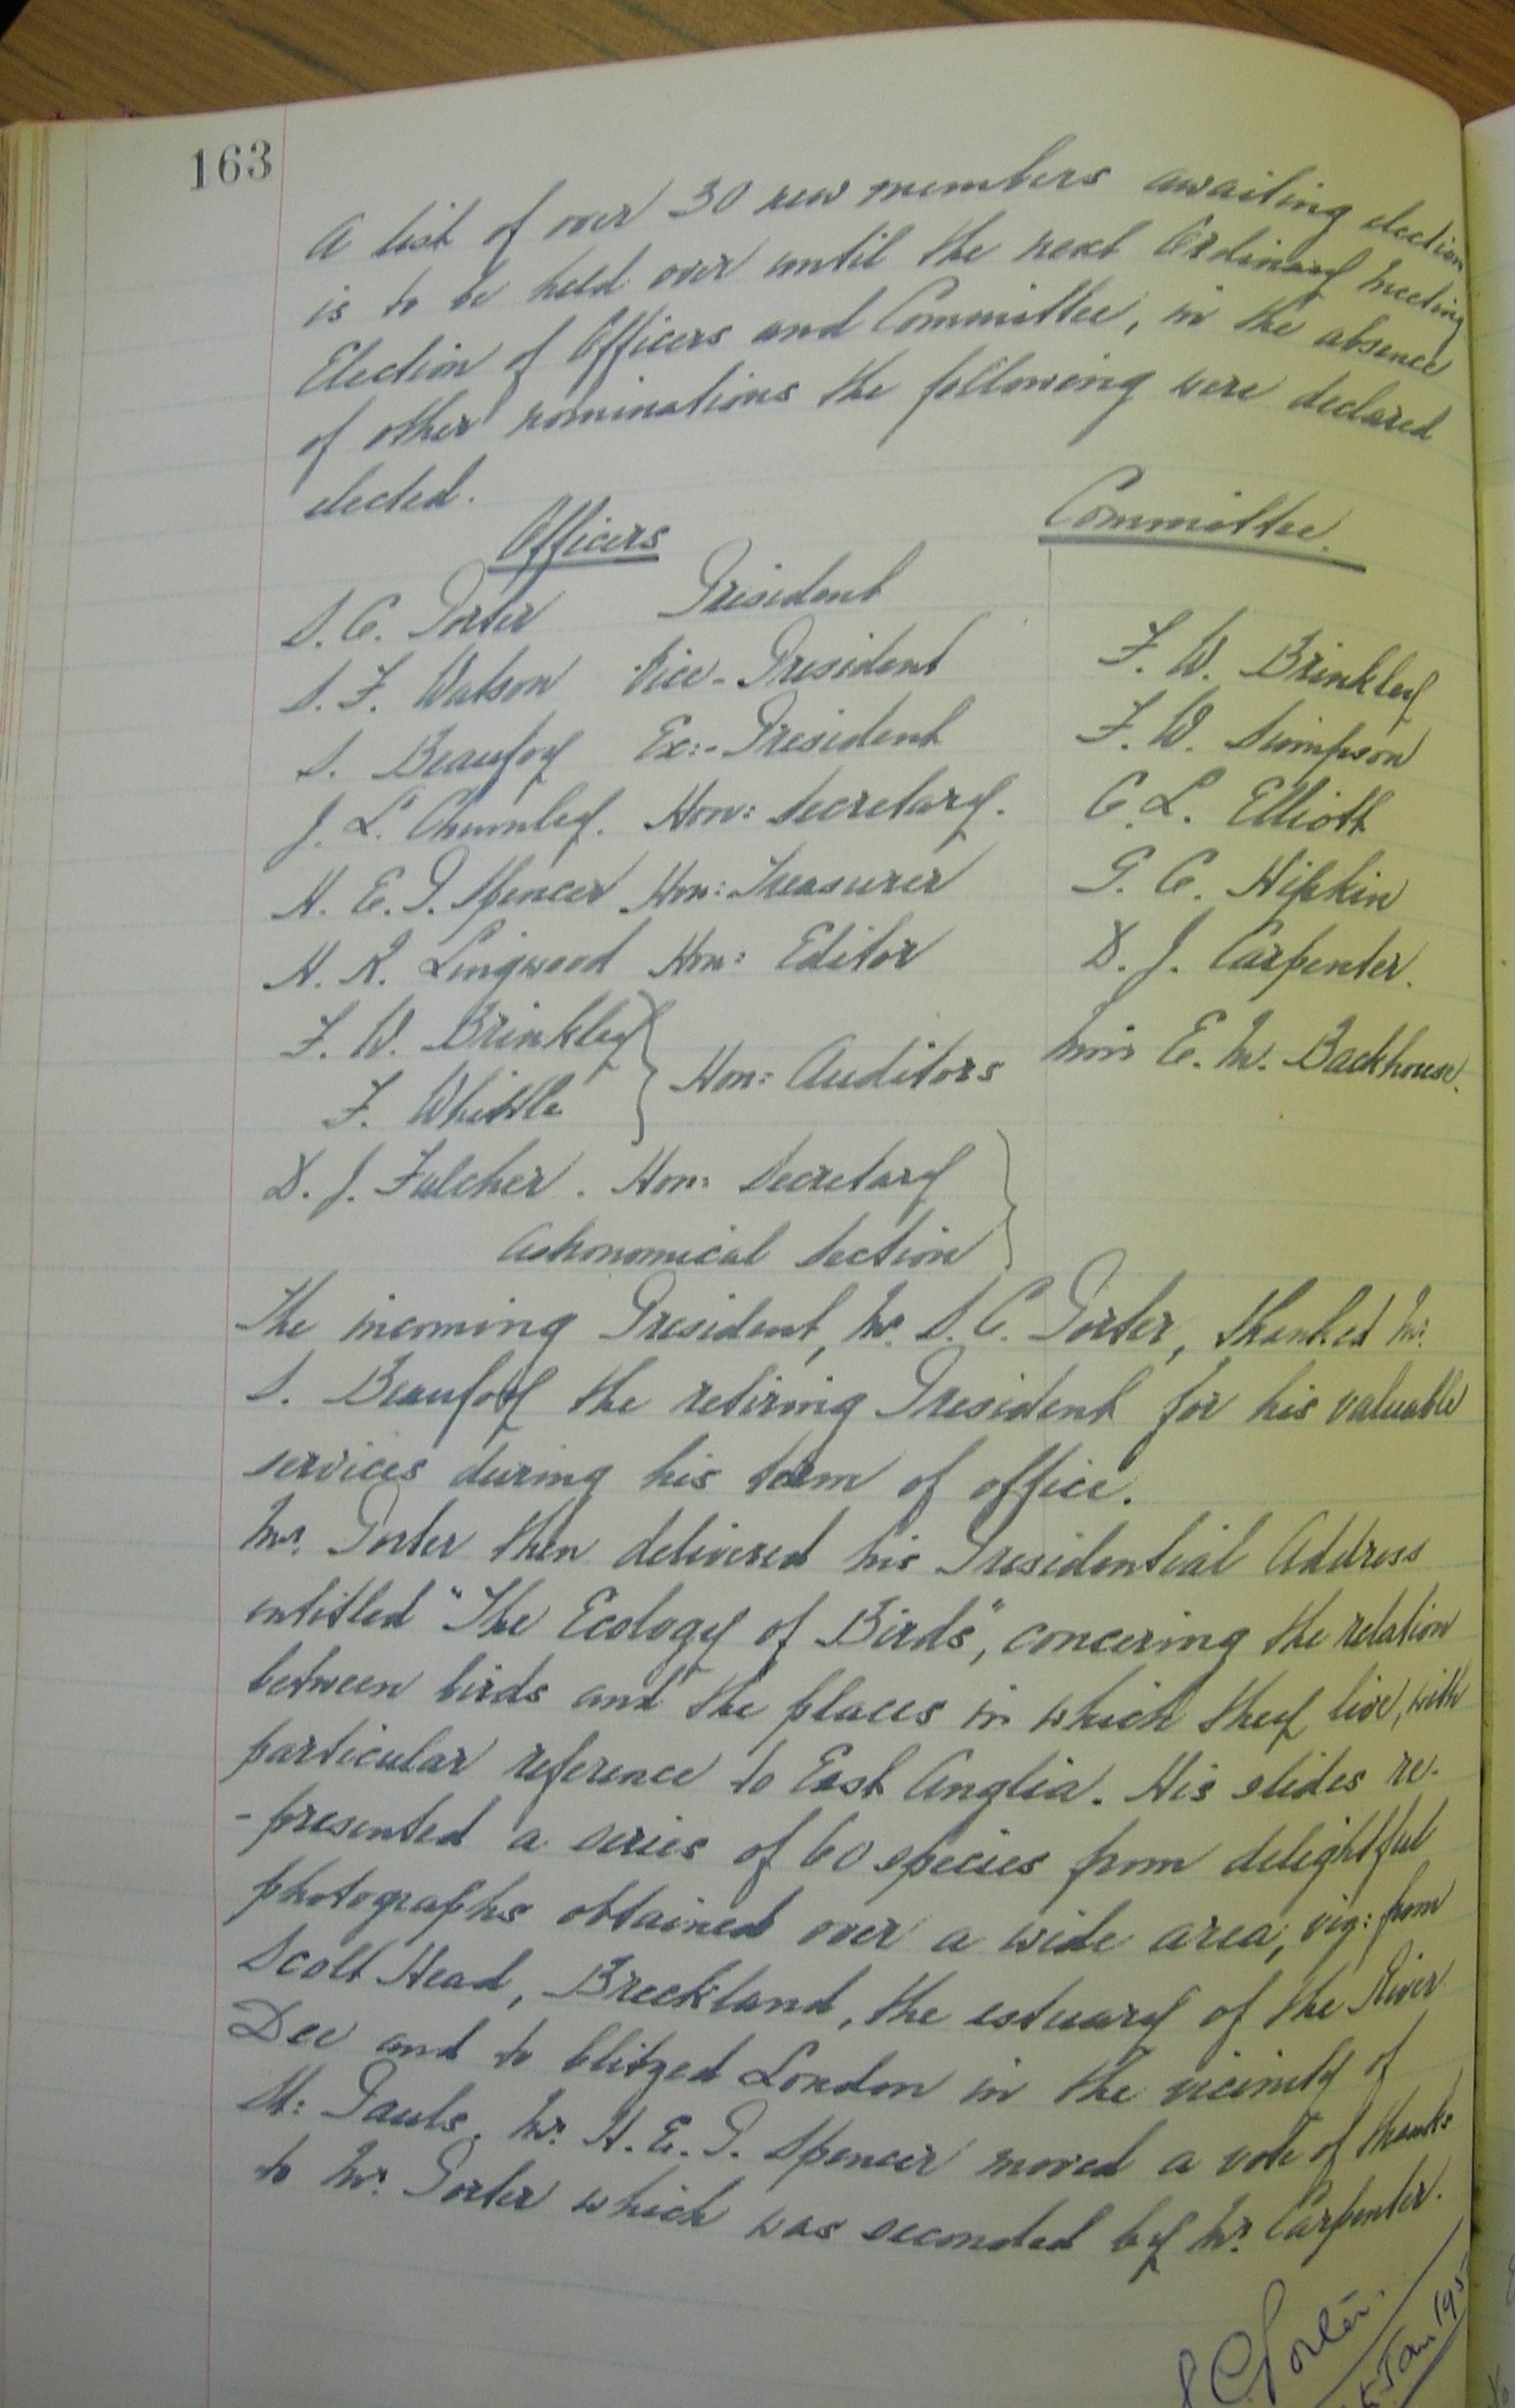 163
A list of over 30 new members awaiting election
is to be held over until the next Ordinary Meeting
Election of Officers and Committee, in the absence
of other nominations the following were declared
elected.
Officers
Committee.
S. C. Porter President
S. F. Watson Vice-President
S. Beaufoy Ex:-President
J. L. Chumley. Hon: Secretary.
H. E. P. Spencer Hon: Treasurer
H. R. Lingwood Hon: Editor
F. W. Brinkley
F. Whittle
Hon: Auditors
D. J. Fulcher. Hon: Secretary
Astronomical Section
F. W. Brinkley
F. W. Simpson
C. L. Elliott
G. C. Hipkin
D. J. Carpenter.
Miss E. M. Backhouse.
The incoming President, Mr. S. C. Porter, thanked Mr.
S. Beaufoy the retiring President for his valuable
services during his term of office.
Mr. Porter then delivered his Presidential Address
entitled "The Ecology of Birds", concering the relation
between birds and the places in which they live, with
particular reference to East Anglia. His slides re-
-presented a series of 60 species from delightful
photographs obtained over a wide area, viz: from
Scolt Head, Breckland, the estuary of the River
Dee and to blitzed London in the vicinity of
St: Pauls. Mr. H. E. P. Spencer moved a vote of thanks
to Mr. Porter which was seconded by Mr. Carpenter.
S C Porter.
Jan 195